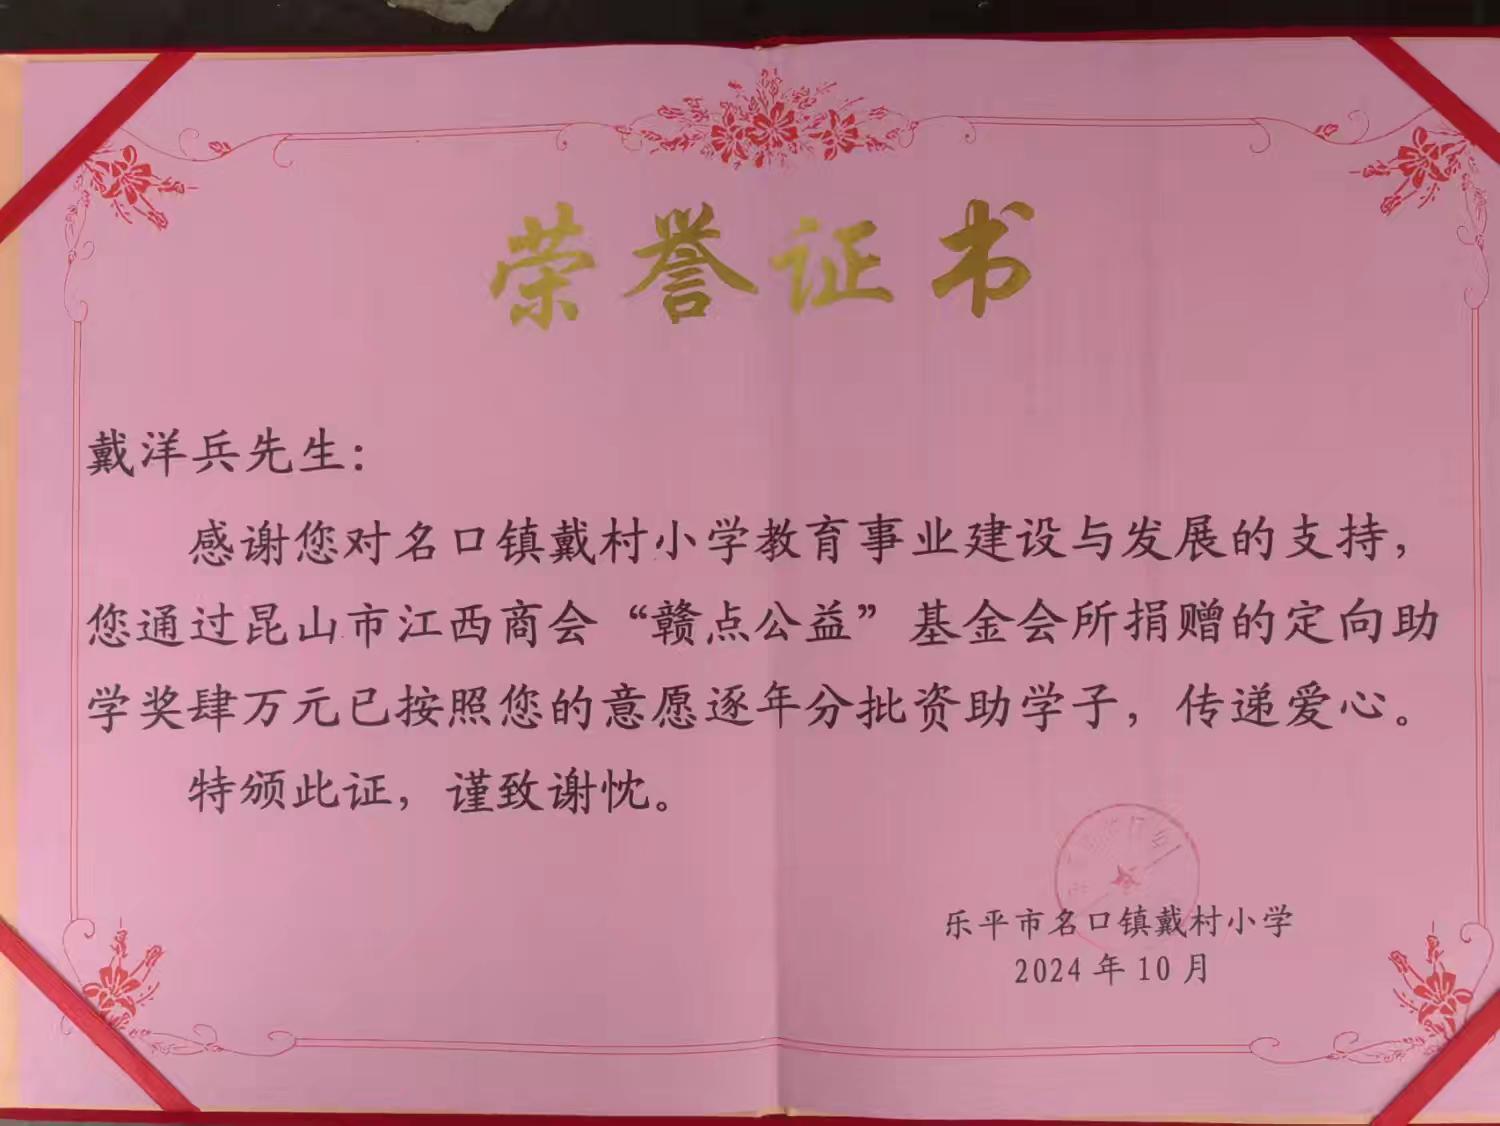 荣誉证书
戴洋兵先生：
感谢您对名口镇戴村小学教育事业建设与发展的支持，
您通过昆山市江西商会“赣点公益”基金会所捐赠的定向助
学奖肆万元已按照您的意愿逐年分批资助学子，传递爱心。
特颁此证，谨致谢忱。
乐平市名口镇戴村小学
2024年10月